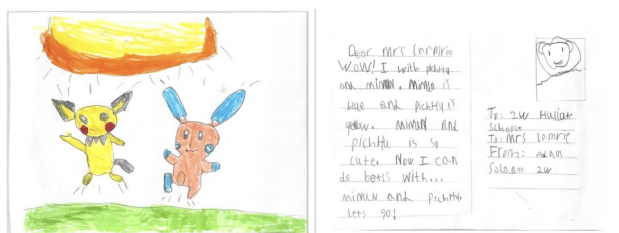 Dear Mrs Lamrie
WOW! I with pichttu
and minun. Minun is
blue and pichtty is
yellow. minun and
pichttu is so
cute. Now I can
do botts with...
minun and pichttu.
lets go!
To: 2W
Schoole
To: Mrs Lamrie
From: Adan
2W